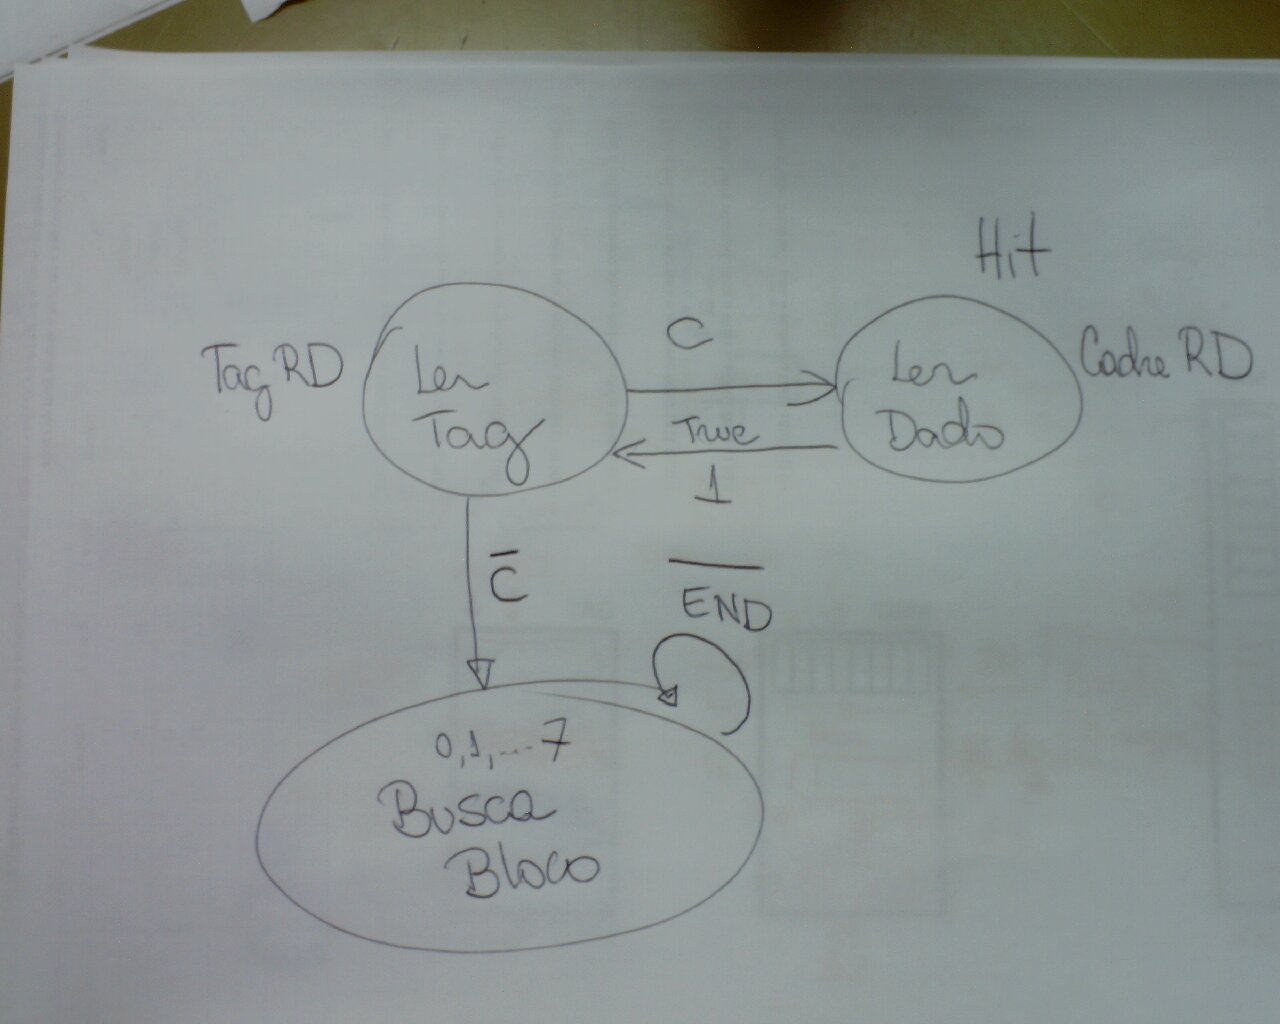 Hit
C
Tag RD
Ler
Tag
Ler
Dado
Cache RD
True
1
C̅
E̅N̅D̅
0,1,....7
Busca
Bloco